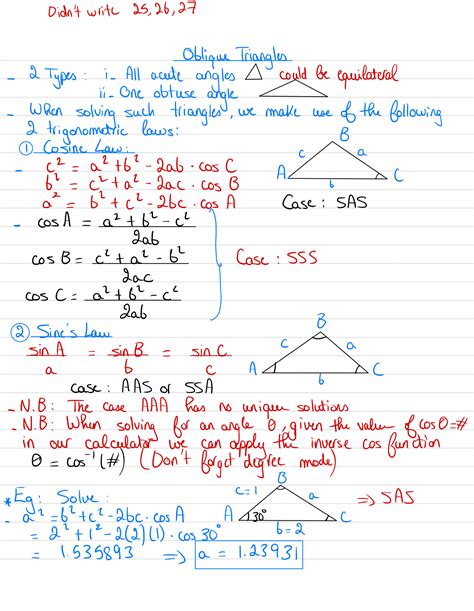 Didn't write 25, 26, 27
Oblique Triangles
- 2 Types: i- All acute angles △ could be equilateral
ii- One obtuse angle
- When solving such triangles, we make use of the following
2 trigonometric laws:
① Cosine Law:
- c² = a² + b² - 2ab · cos C
b² = c² + a² - 2ac · cos B
a² = b² + c² - 2bc · cos A
A B C
c a b
Case: SAS
- cos A = (a² + b² - c²) / 2ab
cos B = (c² + a² - b²) / 2ac
cos C = (a² + b² - c²) / 2ab
Case: SSS
② Sine's Law
sin A / a = sin B / b = sin C / c
A B C
c a b
case: AAS or SSA
- N.B: The case AAA has no unique solutions
- N.B: When solving for an angle θ, given the value of cos θ = #
in our calculator we can apply the inverse cos function
θ = cos⁻¹(#) (Don't forget degree mode)
* Eg: Solve:
- a² = b² + c² - 2bc · cos A
= 2² + 1² - 2(2)(1) · cos 30°
= 1.535893 ⇒ a = 1.23931
A B C
c=1 a
30° b=2
⇒ SAS